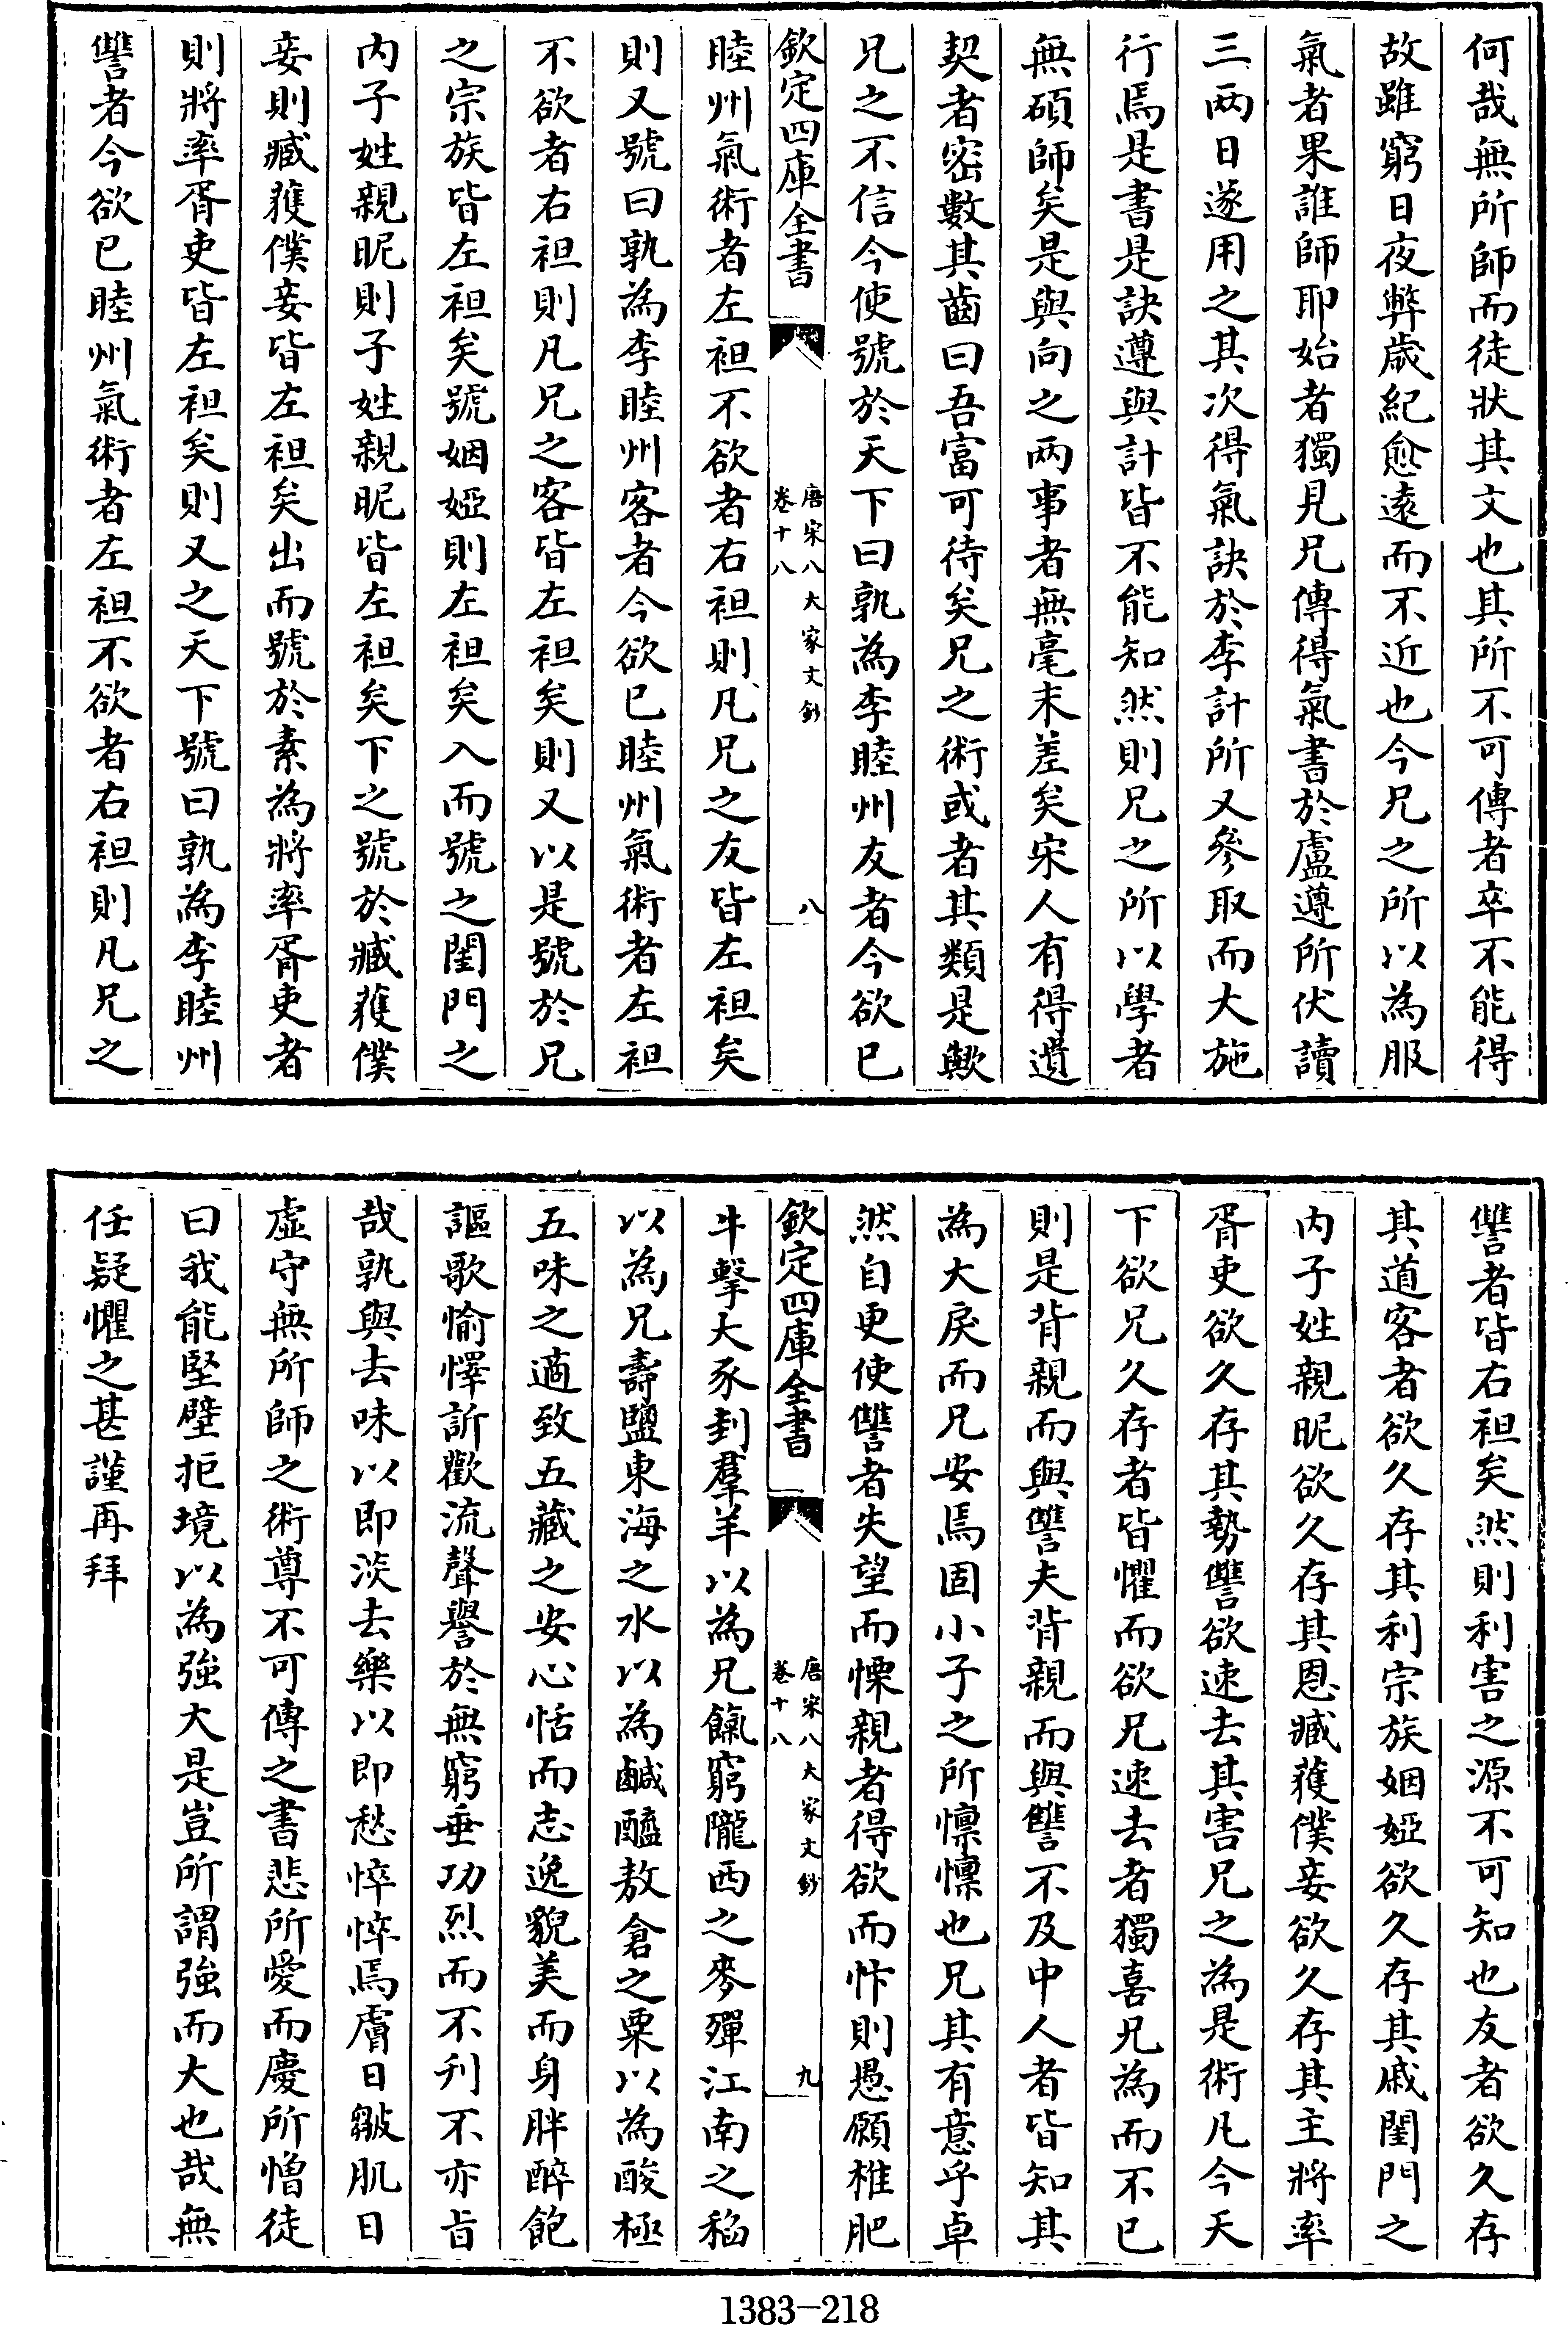 何哉無所師而徒狀其文也其所不可傳者卒不能得
故雖窮日夜弊歲紀愈遠而不近也今兄之所以為服
氣者果誰師耶始者獨見兄傳得氣書於盧遵所伏讀
三兩日遂用之其次得氣訣於李計所又參取而大施
行焉是書是訣遵與計皆不能知然則兄之所以學者
無碩師矣是與向之兩事者無毫末差矣宋人有得遺
契者密數其齒曰吾富可待矣兄之術或者其類是歟
兄之不信今使號於天下曰孰為李睦州友者今欲已
欽定四庫全書
唐宋八大家文鈔
卷十八
八
睦州氣術者左袒不欲者右袒則凡兄之友皆左袒矣
則又號曰孰為李睦州客者今欲已睦州氣術者左袒
不欲者右袒則凡兄之客皆左袒矣則又以是號於兄
之宗族皆左袒矣號姻婭則左袒矣入而號之閨門之
内子姓親昵則子姓親昵皆左袒矣下之號於臧獲僕
妾則臧獲僕妾皆左袒矣出而號於素為將率胥吏者
則將率胥吏皆左袒矣則又之天下號曰孰為李睦州
讐者今欲已睦州氣術者左袒不欲者右袒則凡兄之
讐者皆右袒矣然則利害之源不可知也友者欲久存
其道客者欲久存其利宗族姻婭欲久存其戚閨門之
内子姓親昵欲久存其恩臧獲僕妾欲久存其主將率
胥吏欲久存其勢讐欲速去其害兄之為是術凡今天
下欲兄久存者皆懼而欲兄速去者獨喜兄為而不已
則是背親而與讐夫背親而與讐不及中人者皆知其
為大戾而兄安焉固小子之所懍懍也兄其有意乎卓
然自更使讐者失望而慄親者得欲而忭則愚願椎肥
欽定四庫全書
唐宋八大家文鈔
卷十八
九
牛擊大豕刲羣羊以為兄餼窮隴西之麥殫江南之稻
以為兄壽鹽東海之水以為鹹醯敖倉之粟以為酸極
五味之適致五藏之安心恬而志逸貌美而身胖醉飽
謳歌愉懌訢歡流聲譽於無窮垂功烈而不刋不亦旨
哉孰與去味以即淡去樂以即愁悴悴焉膚日皺肌日
虛守無所師之術尊不可傳之書悲所愛而慶所憎徒
曰我能堅壁拒境以為強大是豈所謂強而大也哉無
任疑懼之甚謹再拜
1383-218